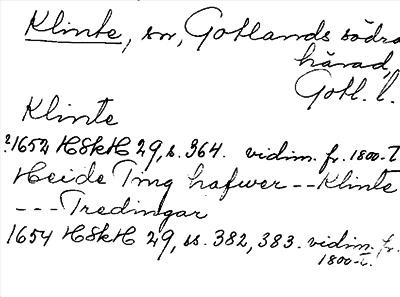 Klinte, sn, Gotlands södra
härad,
Gotl. l.
Klinte
?1654 HSkH 29, s. 364. vidim. fr. 1800-t
Heide Ting hafwer -- Klinte
--- Tredingar
1654 HSkH 29, ss. 382, 383. vidim. fr.
1800-t.